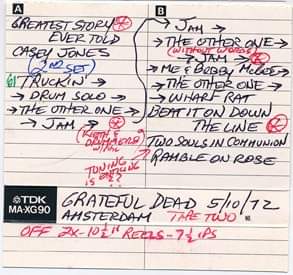 A
GREATEST STORY
EVER TOLD
CASEY JONES
(2ND SET)
61 TRUCKIN' →
→ DRUM SOLO →
→ THE OTHER ONE →
→ JAM →
(KEITH & DRUMMERS
TUNING
IS
B
→ JAM →
→ THE OTHER ONE →
(WITHOUT WORDS)
→ JAM →
→ ME & BOBBY McGEE →
→ THE OTHER ONE →
→ WHARF RAT
BEAT IT ON DOWN
THE LINE
TWO SOULS IN COMMUNION
RAMBLE ON ROSE
TDK
MA-XG90
GRATEFUL DEAD 5/10/72
AMSTERDAM TAPE TWO
OFF 2X-10½" REELS-7½ IPS